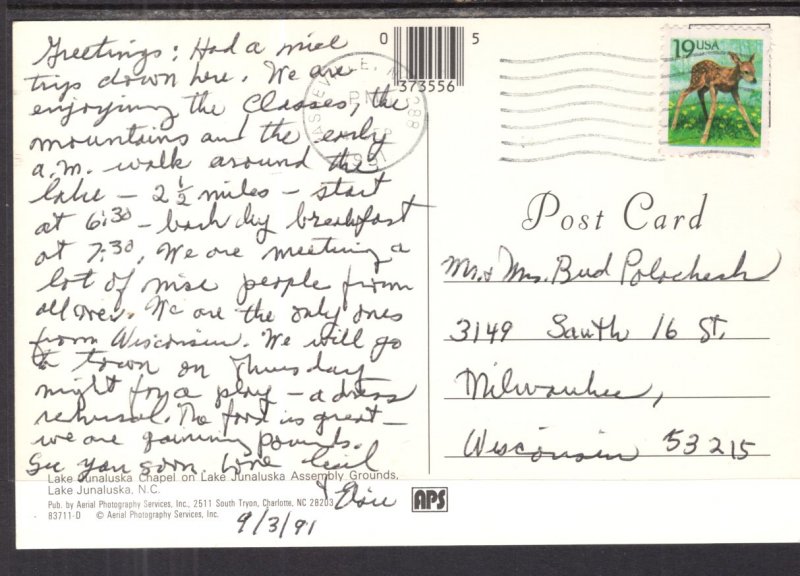 Greetings: Had a nice
trip down here. We are
enjoying the classes, the
mountains and the early
a.m. walk around the
lake – 2 1/2 miles – start
at 6:30 – back by breakfast
at 7:30. We are meeting a
lot of nice people from
all over. We are the only ones
from Wisconsin. We will go
to town on Thursday
night for a play – a dress
rehursal. The food is great –
we are gaining pounds.
See you soon. Love Ceil
& Elsie
9/3/91
0 5
373556
ASHEVILLE, N
PM
1991
19 USA
Post Card
Mr. & Mrs. Bud Polacheck
3149 South 16 St.
Milwaukee,
Wisconsin 53215
Lake Junaluska Chapel on Lake Junaluska Assembly Grounds,
Lake Junaluska, N.C.
Pub. by Aerial Photography Services, Inc., 2511 South Tryon, Charlotte, NC 28203
83711-D © Aerial Photography Services, Inc.
APS